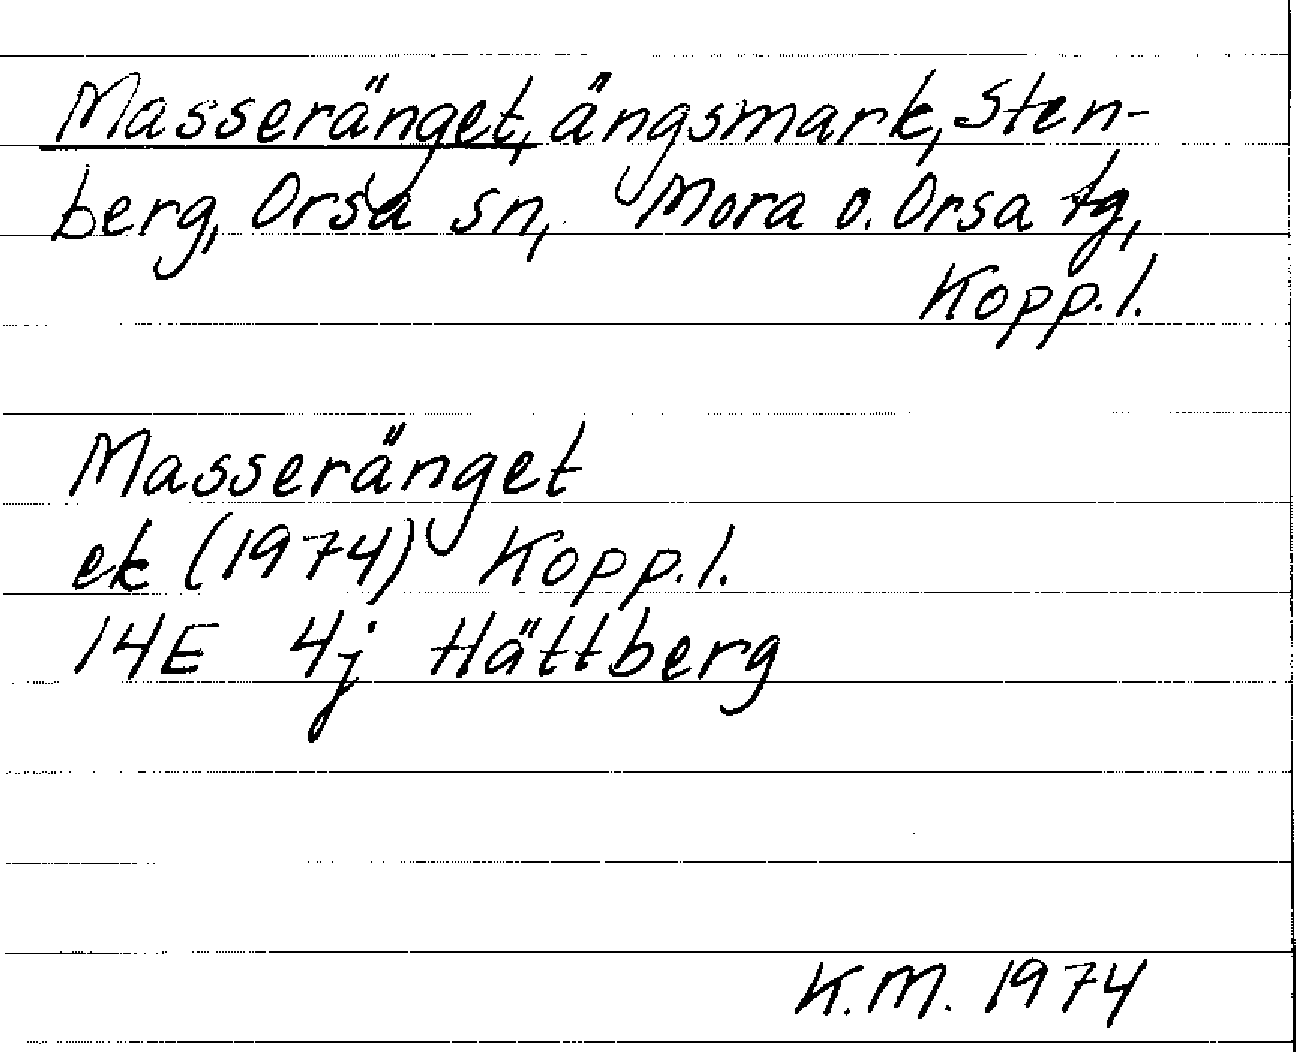 Masseränget, ängsmark, Sten-
berg, Orsa sn, Mora o. Orsa tg,
Kopp. l.
Masseränget
ek (1974) Kopp. l.
14E 4j Hättberg
K.M. 1974